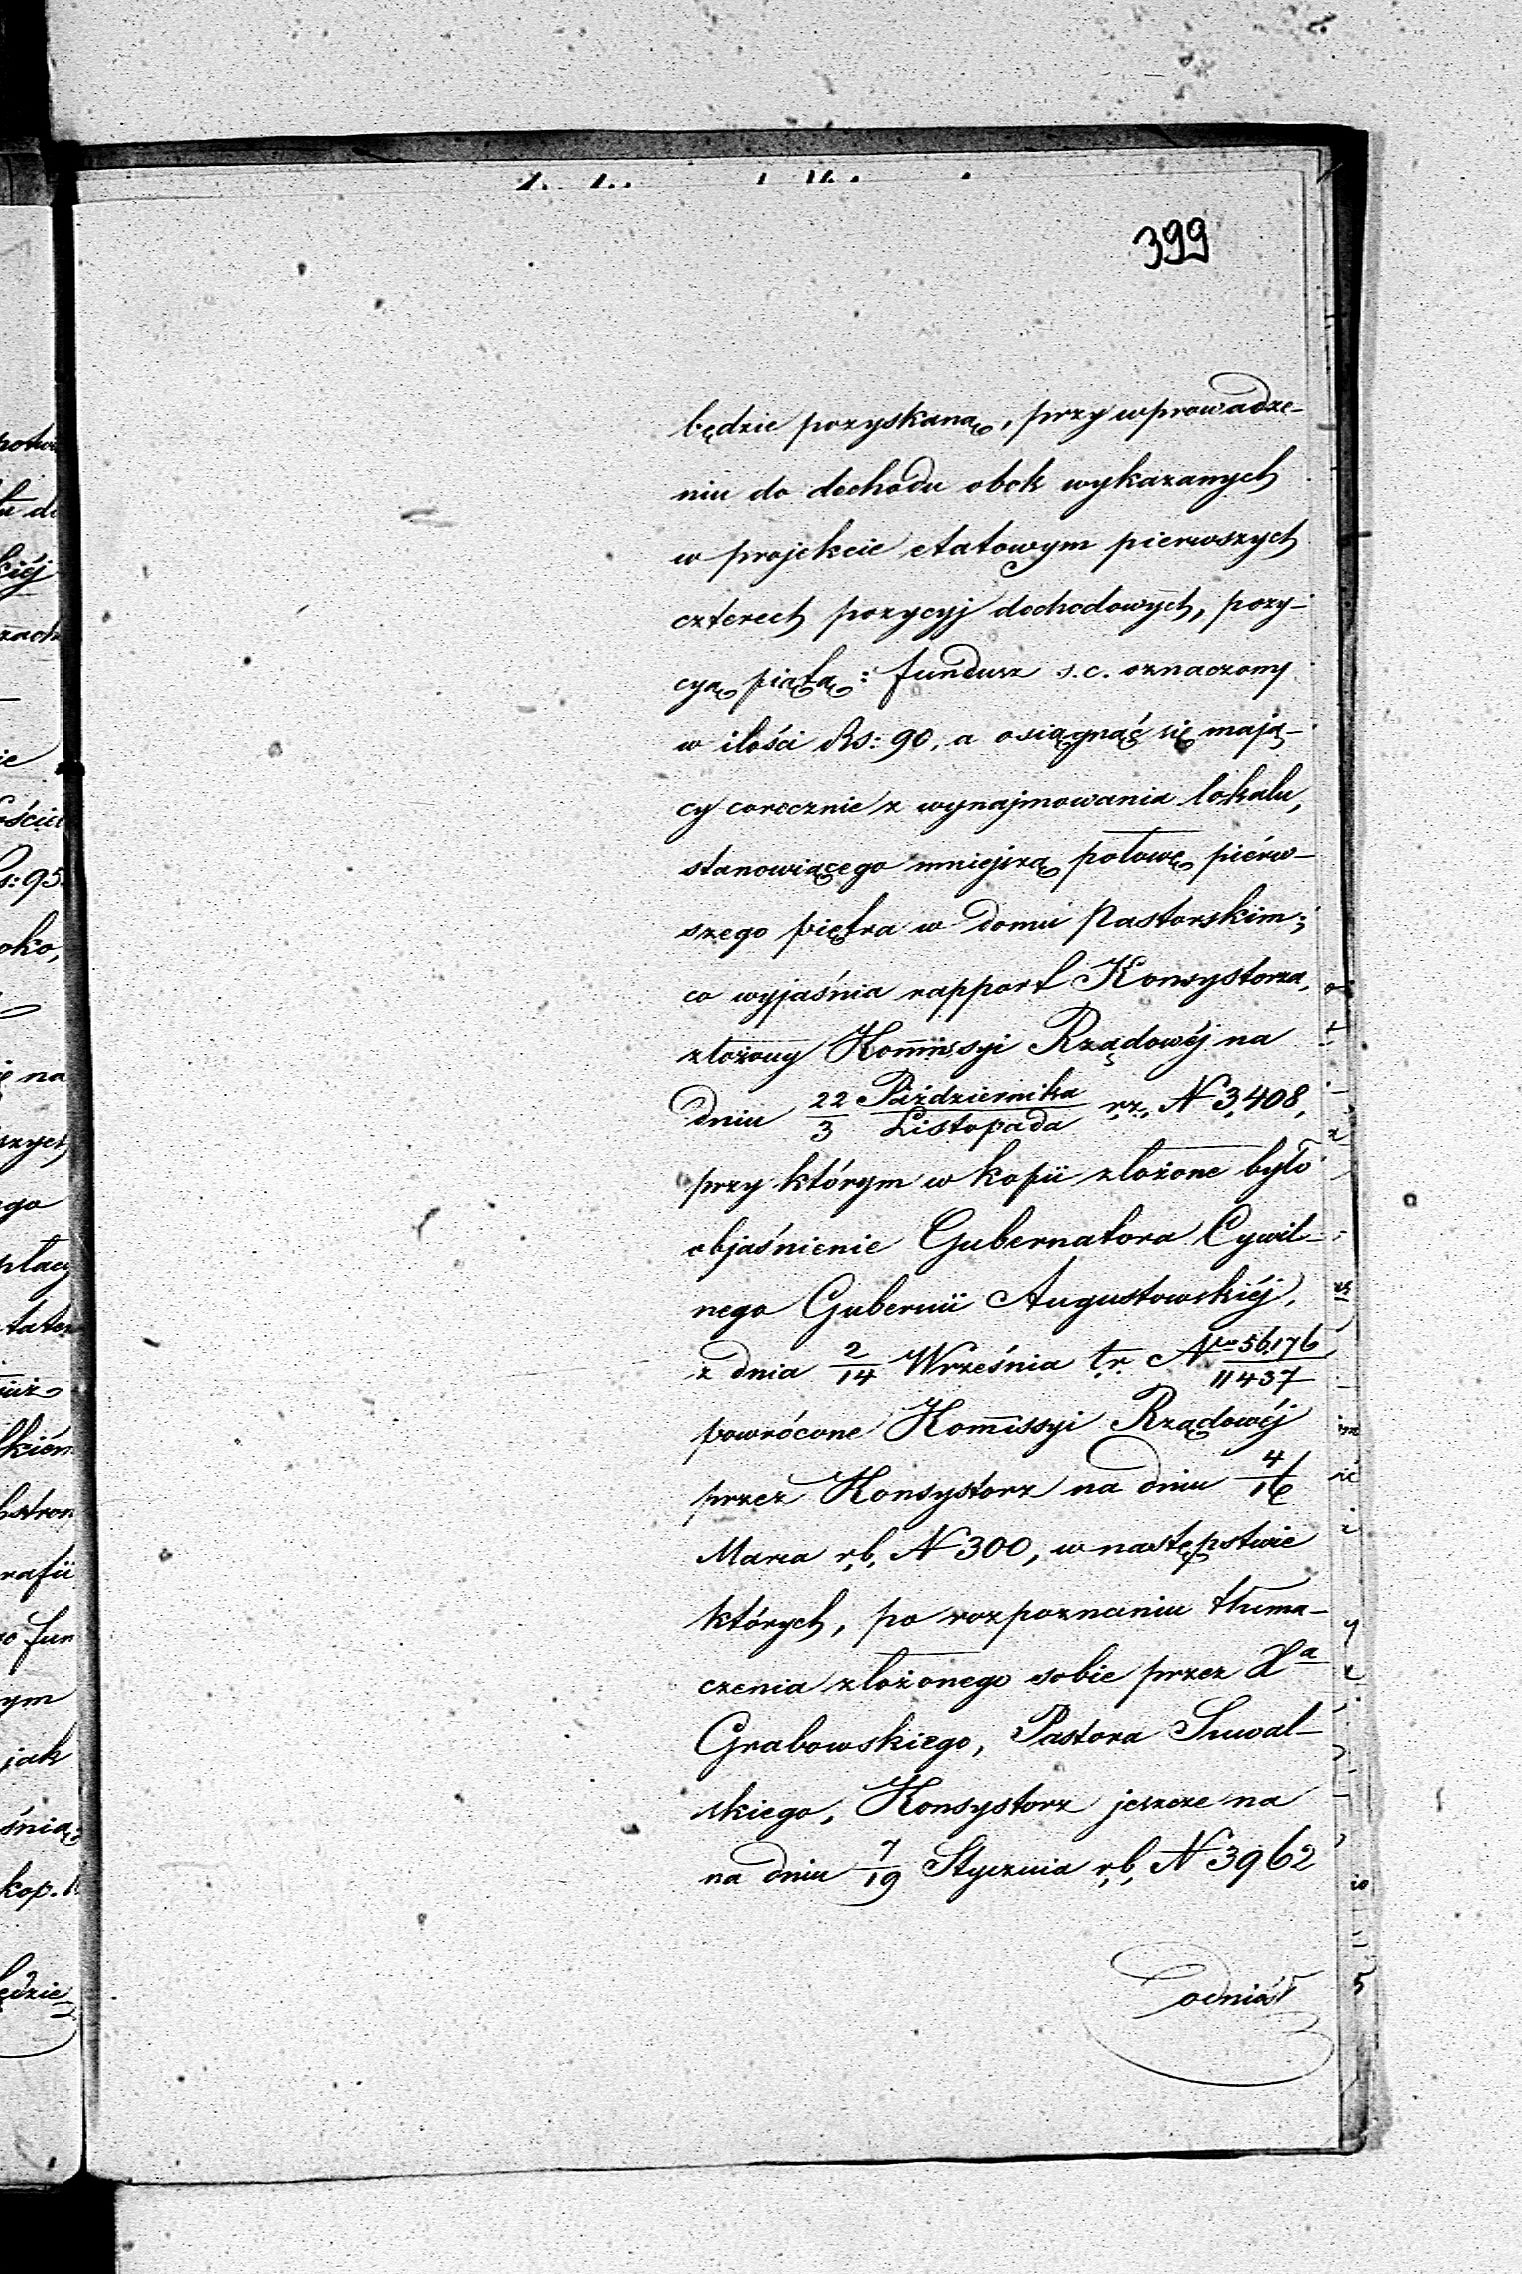 399
będzie pozyskaną, przy wprowadze-
niu do dochodu obok wykazanych
w projekcie etatowym pierwszych
czterech pozycyj dochodowych, pozy-
cyą piątą: fundusz s.c. oznaczony
w ilości Rs: 90, a osiągnąć się mają-
cy corocznie z wynajmowania lokalu,
stanowiącego mniejszą połowę piérw-
szego piętra w domu Pastorskim;
co wyjaśnia rapport Konsystorza,
złożony Kommissyi Rządowéj na
dniu 22/3 Października/Listopada r.z. N 3,408,
przy którym w kopii złożone było
objaśnienie Gubernatora Cywil-
nego Gubernii Augustowskiéj,
z dnia 2/14 Września t.r. Nro 56,176/11437
powrócone Kommissyi Rządowéj
przez Konsystorz na dniu 4/16
Marca r.b. N 300, w następstwie
których, po rozpoznaniu tłuma-
czenia złożonego sobie przez Xa
Grabowskiego, Pastora Suwal-
skiego, Konsystorz jeszcze na
na dniu 7/19 Stycznia r.b. N 3962
odniósł